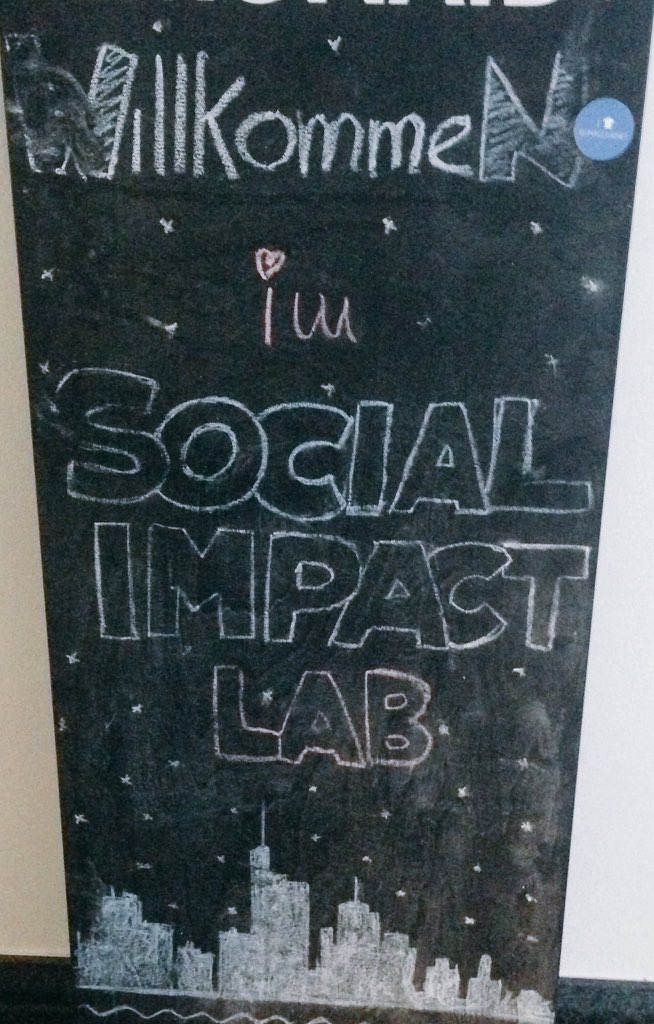 WillkommeN
im
SOCIAL
IMPACT
LAB